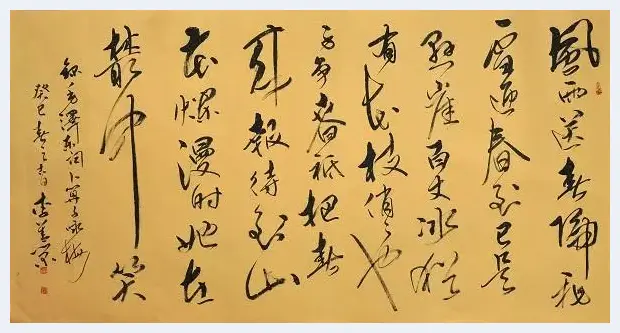 風雨送春歸飛
雪迎春到已是
懸崖百丈冰猶
有花枝俏〻也
不爭春祇把春
來報待到山
花爛漫時她在
叢中笑
錄毛澤東詞卜算子咏梅
癸巳春